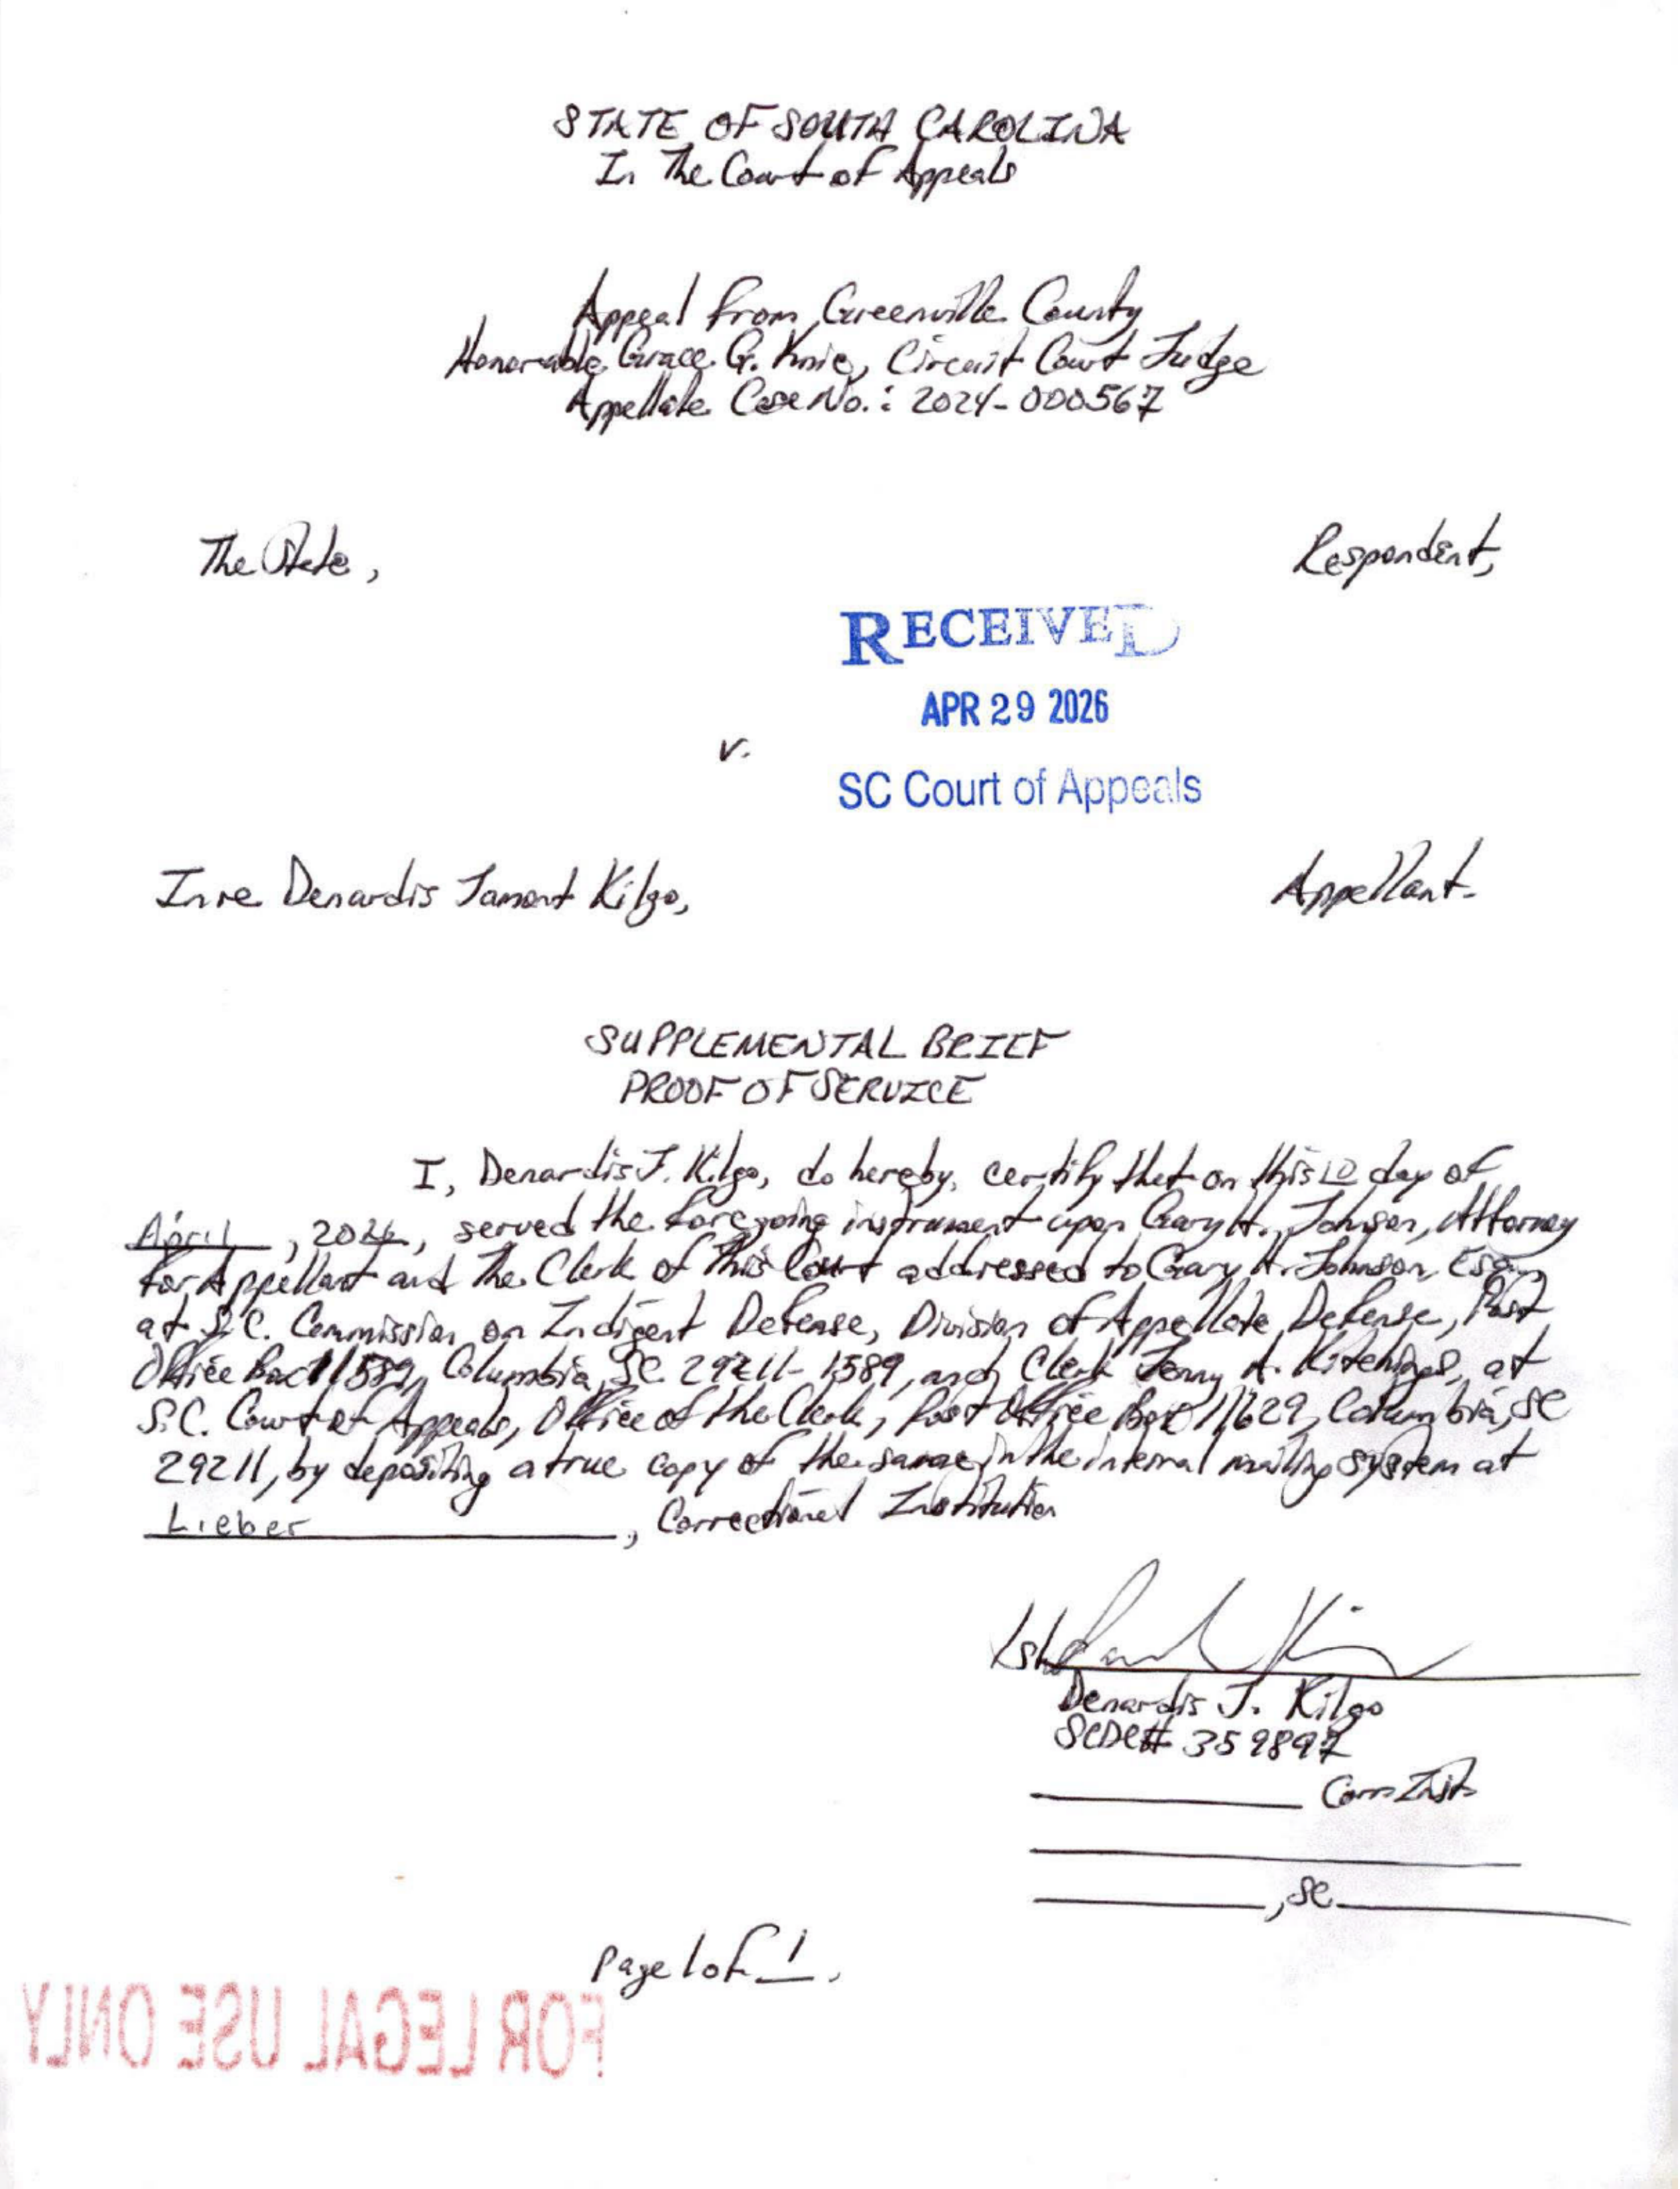 STATE OF SOUTH CAROLINA
In The Court of Appeals
Appeal from Greenville County
Honorable Grace G. Knie, Circuit Court Judge
Appellate Case No.: 2024-000567
The State,
Respondent,
RECEIVED
APR 29 2026
v.
SC Court of Appeals
In re Denardis Jamont Kilgo,
Appellant.
SUPPLEMENTAL BRIEF
PROOF OF SERVICE
I, Denardis J. Kilgo, do hereby, certify that on this 10 day of
April, 2026, served the foregoing instrument upon Gary H. Johnson, Attorney
for Appellant and The Clerk of This Court addressed to Gary H. Johnson, Esq.,
at S.C. Commission on Indigent Defense, Division of Appellate Defense, Post
Office Box 11589, Columbia, SC 29211-1589, and Clerk Jenny A. Kitchings, at
S.C. Court of Appeals, Office of the Clerk, Post Office Box 11629, Columbia, SC
29211, by depositing a true copy of the same in the internal mailing system at
Lieber, Correctional Institution
/s/
Denardis J. Kilgo
SCDC# 359897
Corr. Inst.
, SC
Page 1 of 1.
FOR LEGAL USE ONLY